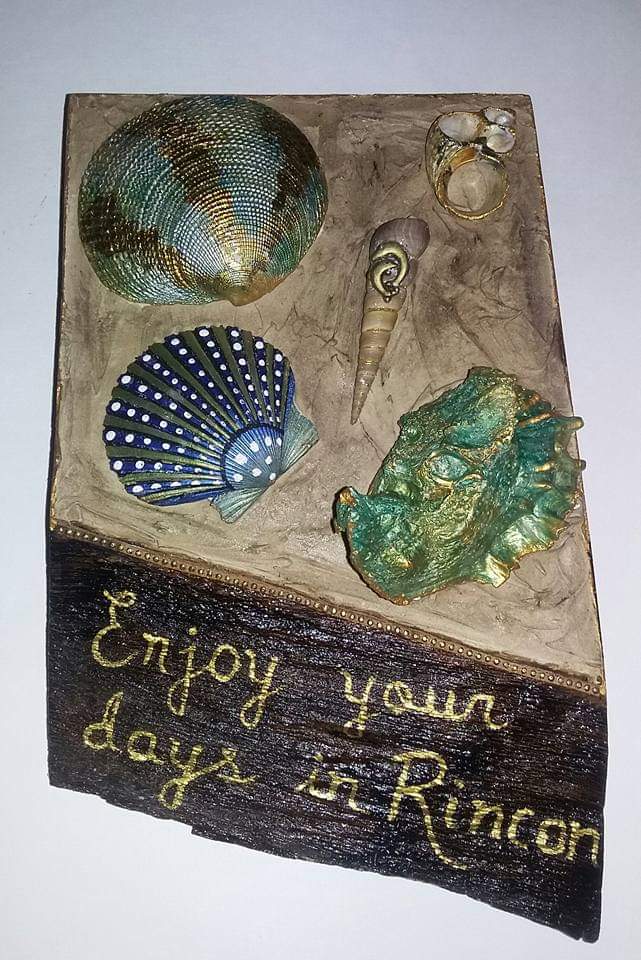 Enjoy your
days in Rincon